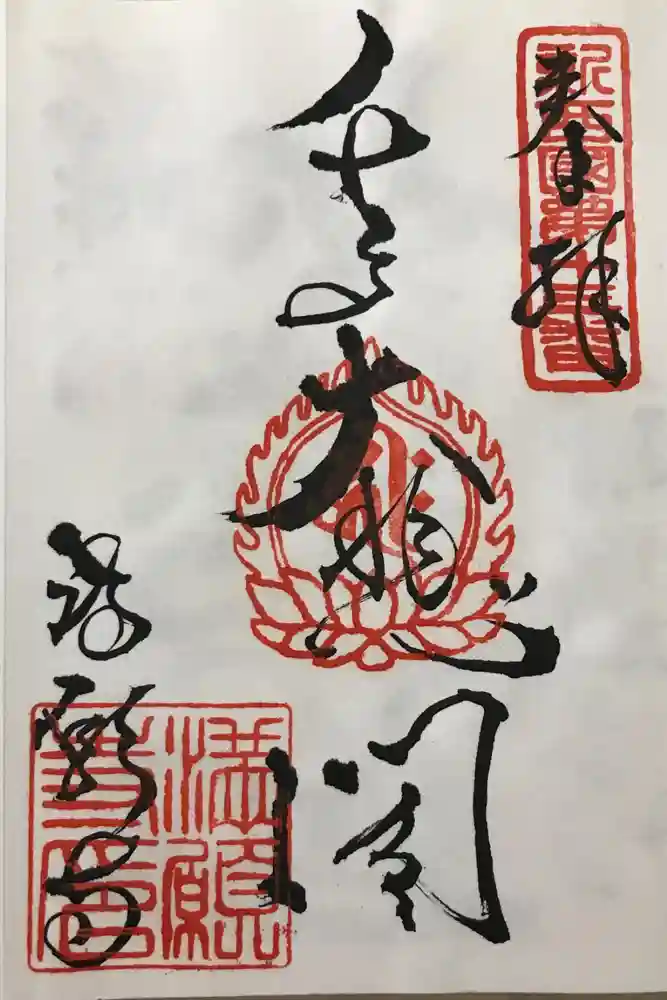 奉拝
新西国第十三番
大悲閣
満願寺
満願
寺印